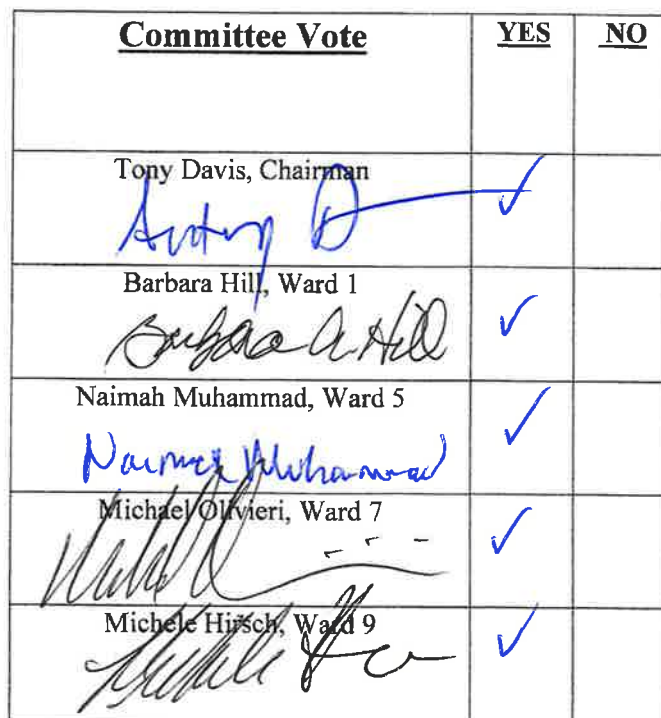 Committee Vote YES NO
Tony Davis, Chairman ✓
Barbara Hill, Ward 1 ✓
Barbara A. Hill
Naimah Muhammad, Ward 5 ✓
Naimah Muhammad
Michael Olivieri, Ward 7 ✓
Michele Hirsch, Ward 9 ✓